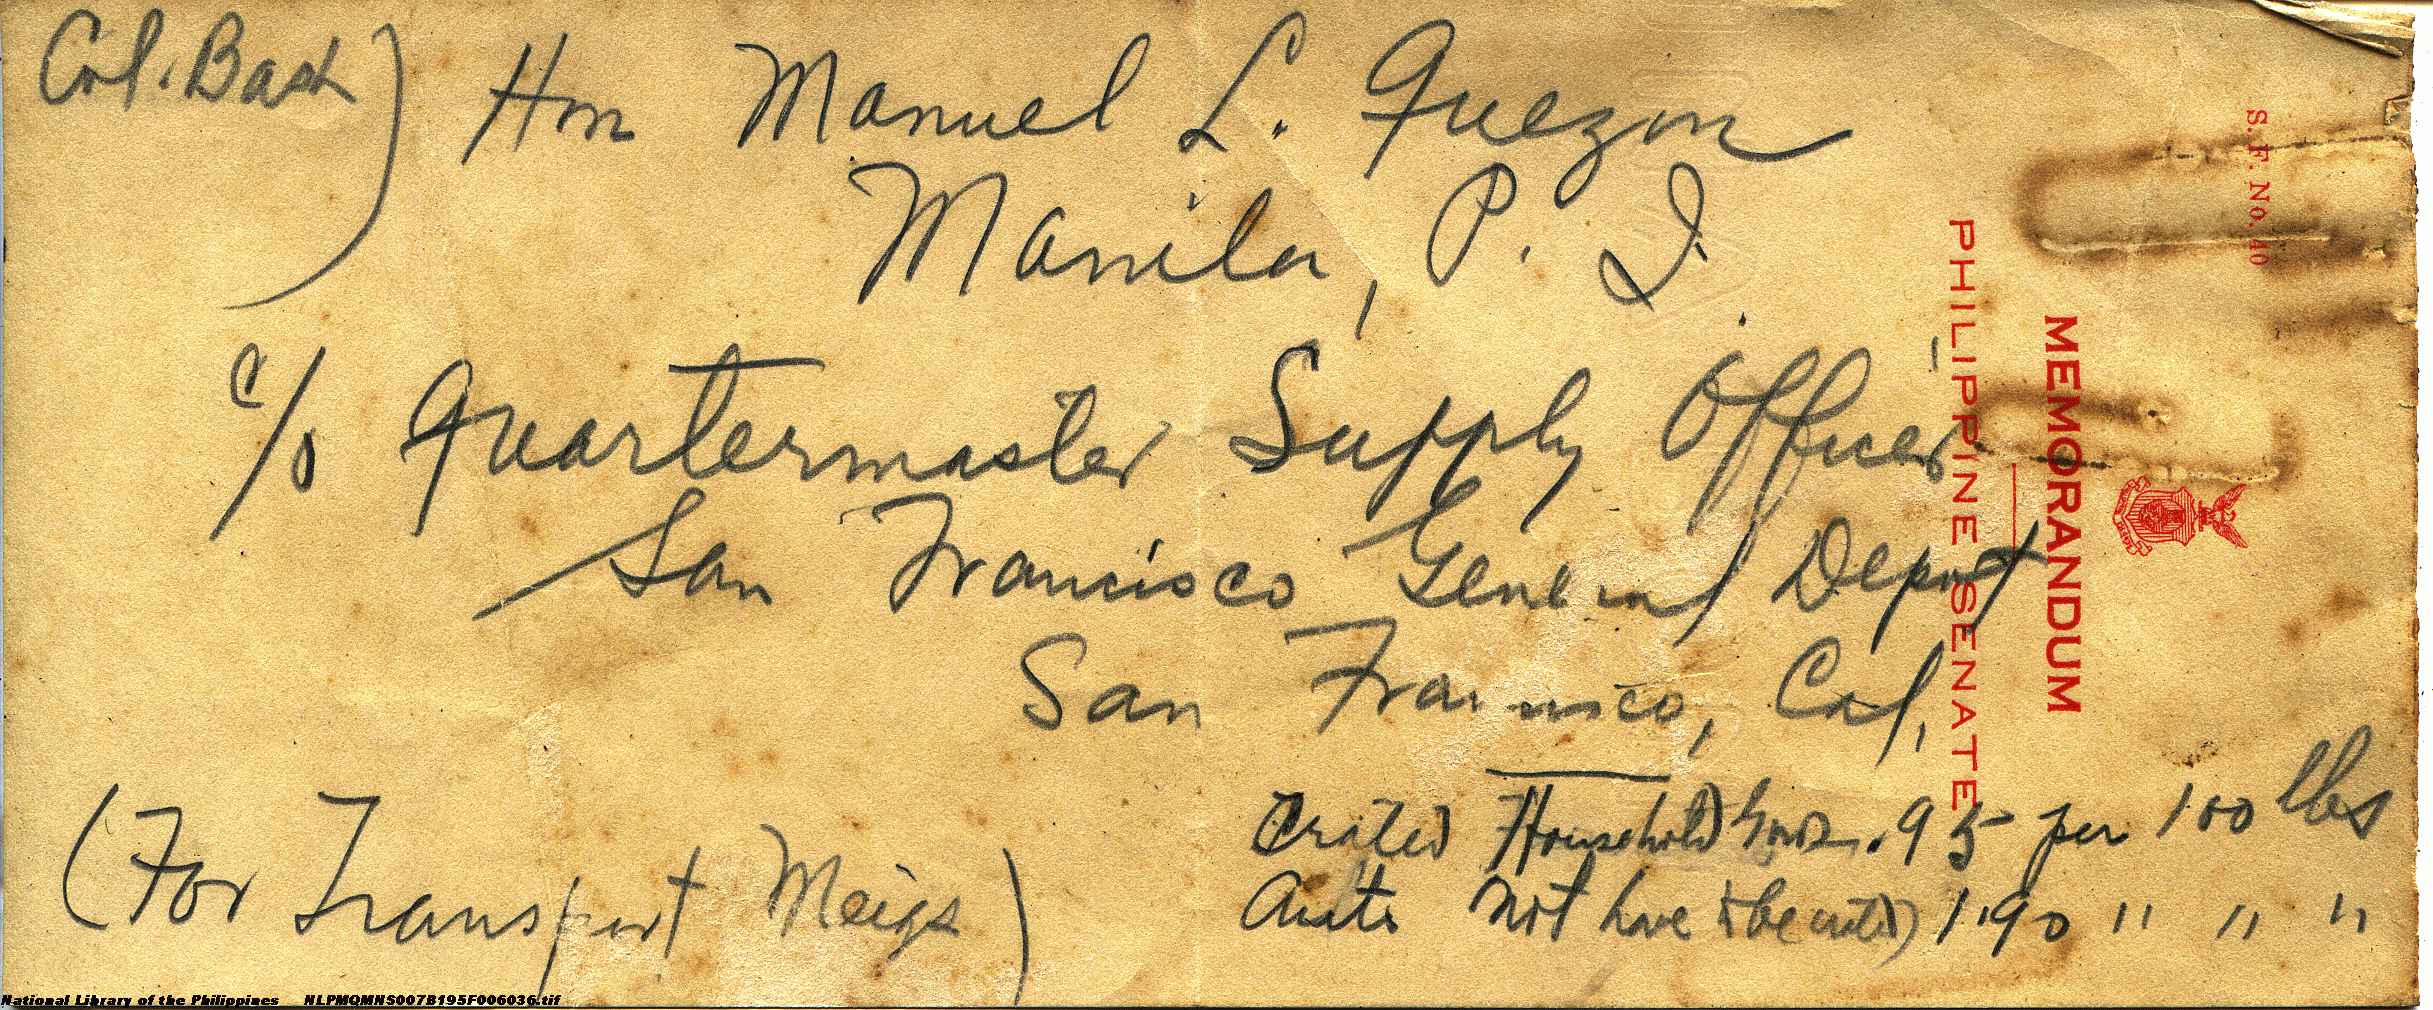 Col. Bash)
Hon Manuel L. Quezon
Manila, P. I.
c/o Quartermaster Supply Officer
San Francisco General Depot
San Francisco, Cal.
(For Transport Meigs)
Crated Household Goods .95 per 100 lbs
Auto Not have to be crated) 1.90 " " "
S. F. No. 40
MEMORANDUM
PHILIPPINE SENATE
National Library of the Philippines NLPMQMNS007B195F006036.tif